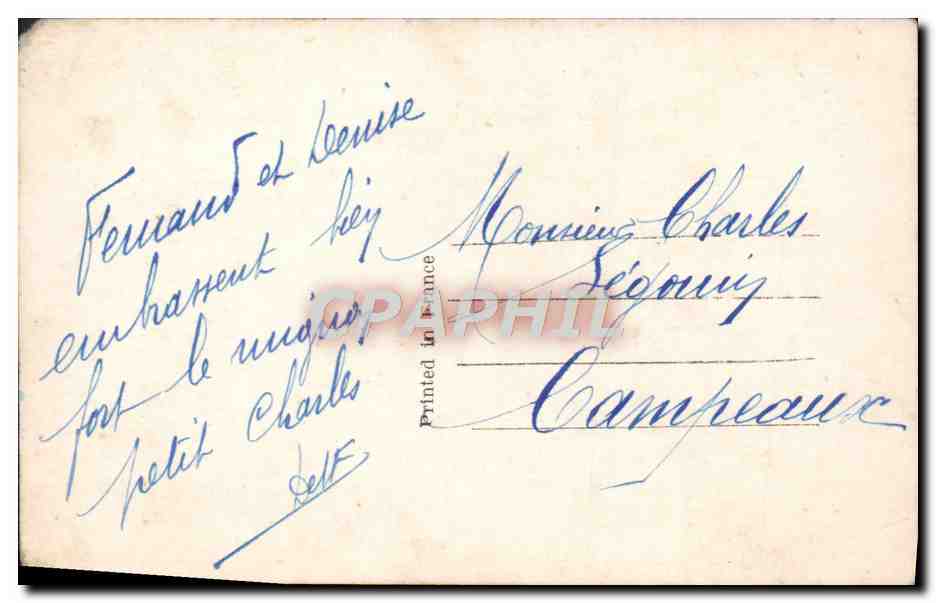 Fernand et Denise
embrassent bien
fort le mignon
petit Charles
D et F
Printed in France
Monsieur Charles
Ségouin
Campeaux
CPAPHIL